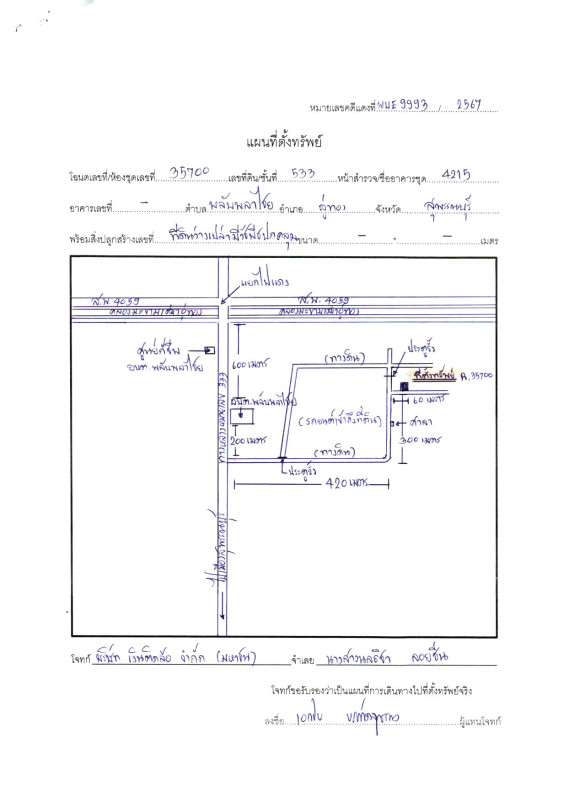 หมายเลขคดีแดงที่ ผบE 9993 / 2567
แผนที่ตั้งทรัพย์
โฉนดเลขที่/ห้องชุดเลขที่ 35700 เลขที่ดิน/ชั้นที่ 533 หน้าสำรวจ/ชื่ออาคารชุด 4215
อาคารเลขที่ - ตำบล พลับพลาไชย อำเภอ อู่ทอง จังหวัด สุพรรณบุรี
พร้อมสิ่งปลูกสร้างเลขที่ ที่ดินว่างเปล่ามีวัชพืชปกคลุม ขนาด - × - เมตร
แยกไฟแดง
ส.พ 4059 ส.พ. 4059
ศูนย์กู้ชีพ
อบต. พลับพลาไชย
600 เมตร
(ทางดิน)
ประตูรั้ว
ที่ตั้งทรัพย์ ฉ.35700
60 เมตร
อบต.พลับพลาไชย
(รถยนต์เข้าถึงที่ดิน)
ศาลา
200 เมตร
300 เมตร
(ทางดิน)
ประตูรั้ว
420 เมตร
ไปเมืองสุพรรณบุรี
โจทก์ บริษัท เงินติดล้อ จำกัด (มหาชน) จำเลย นางสาวนลธิชา ลอยชื่น
โจทก์ขอรับรองว่าเป็นแผนที่การเดินทางไปที่ตั้งทรัพย์จริง
ลงชื่อ ผู้แทนโจทก์